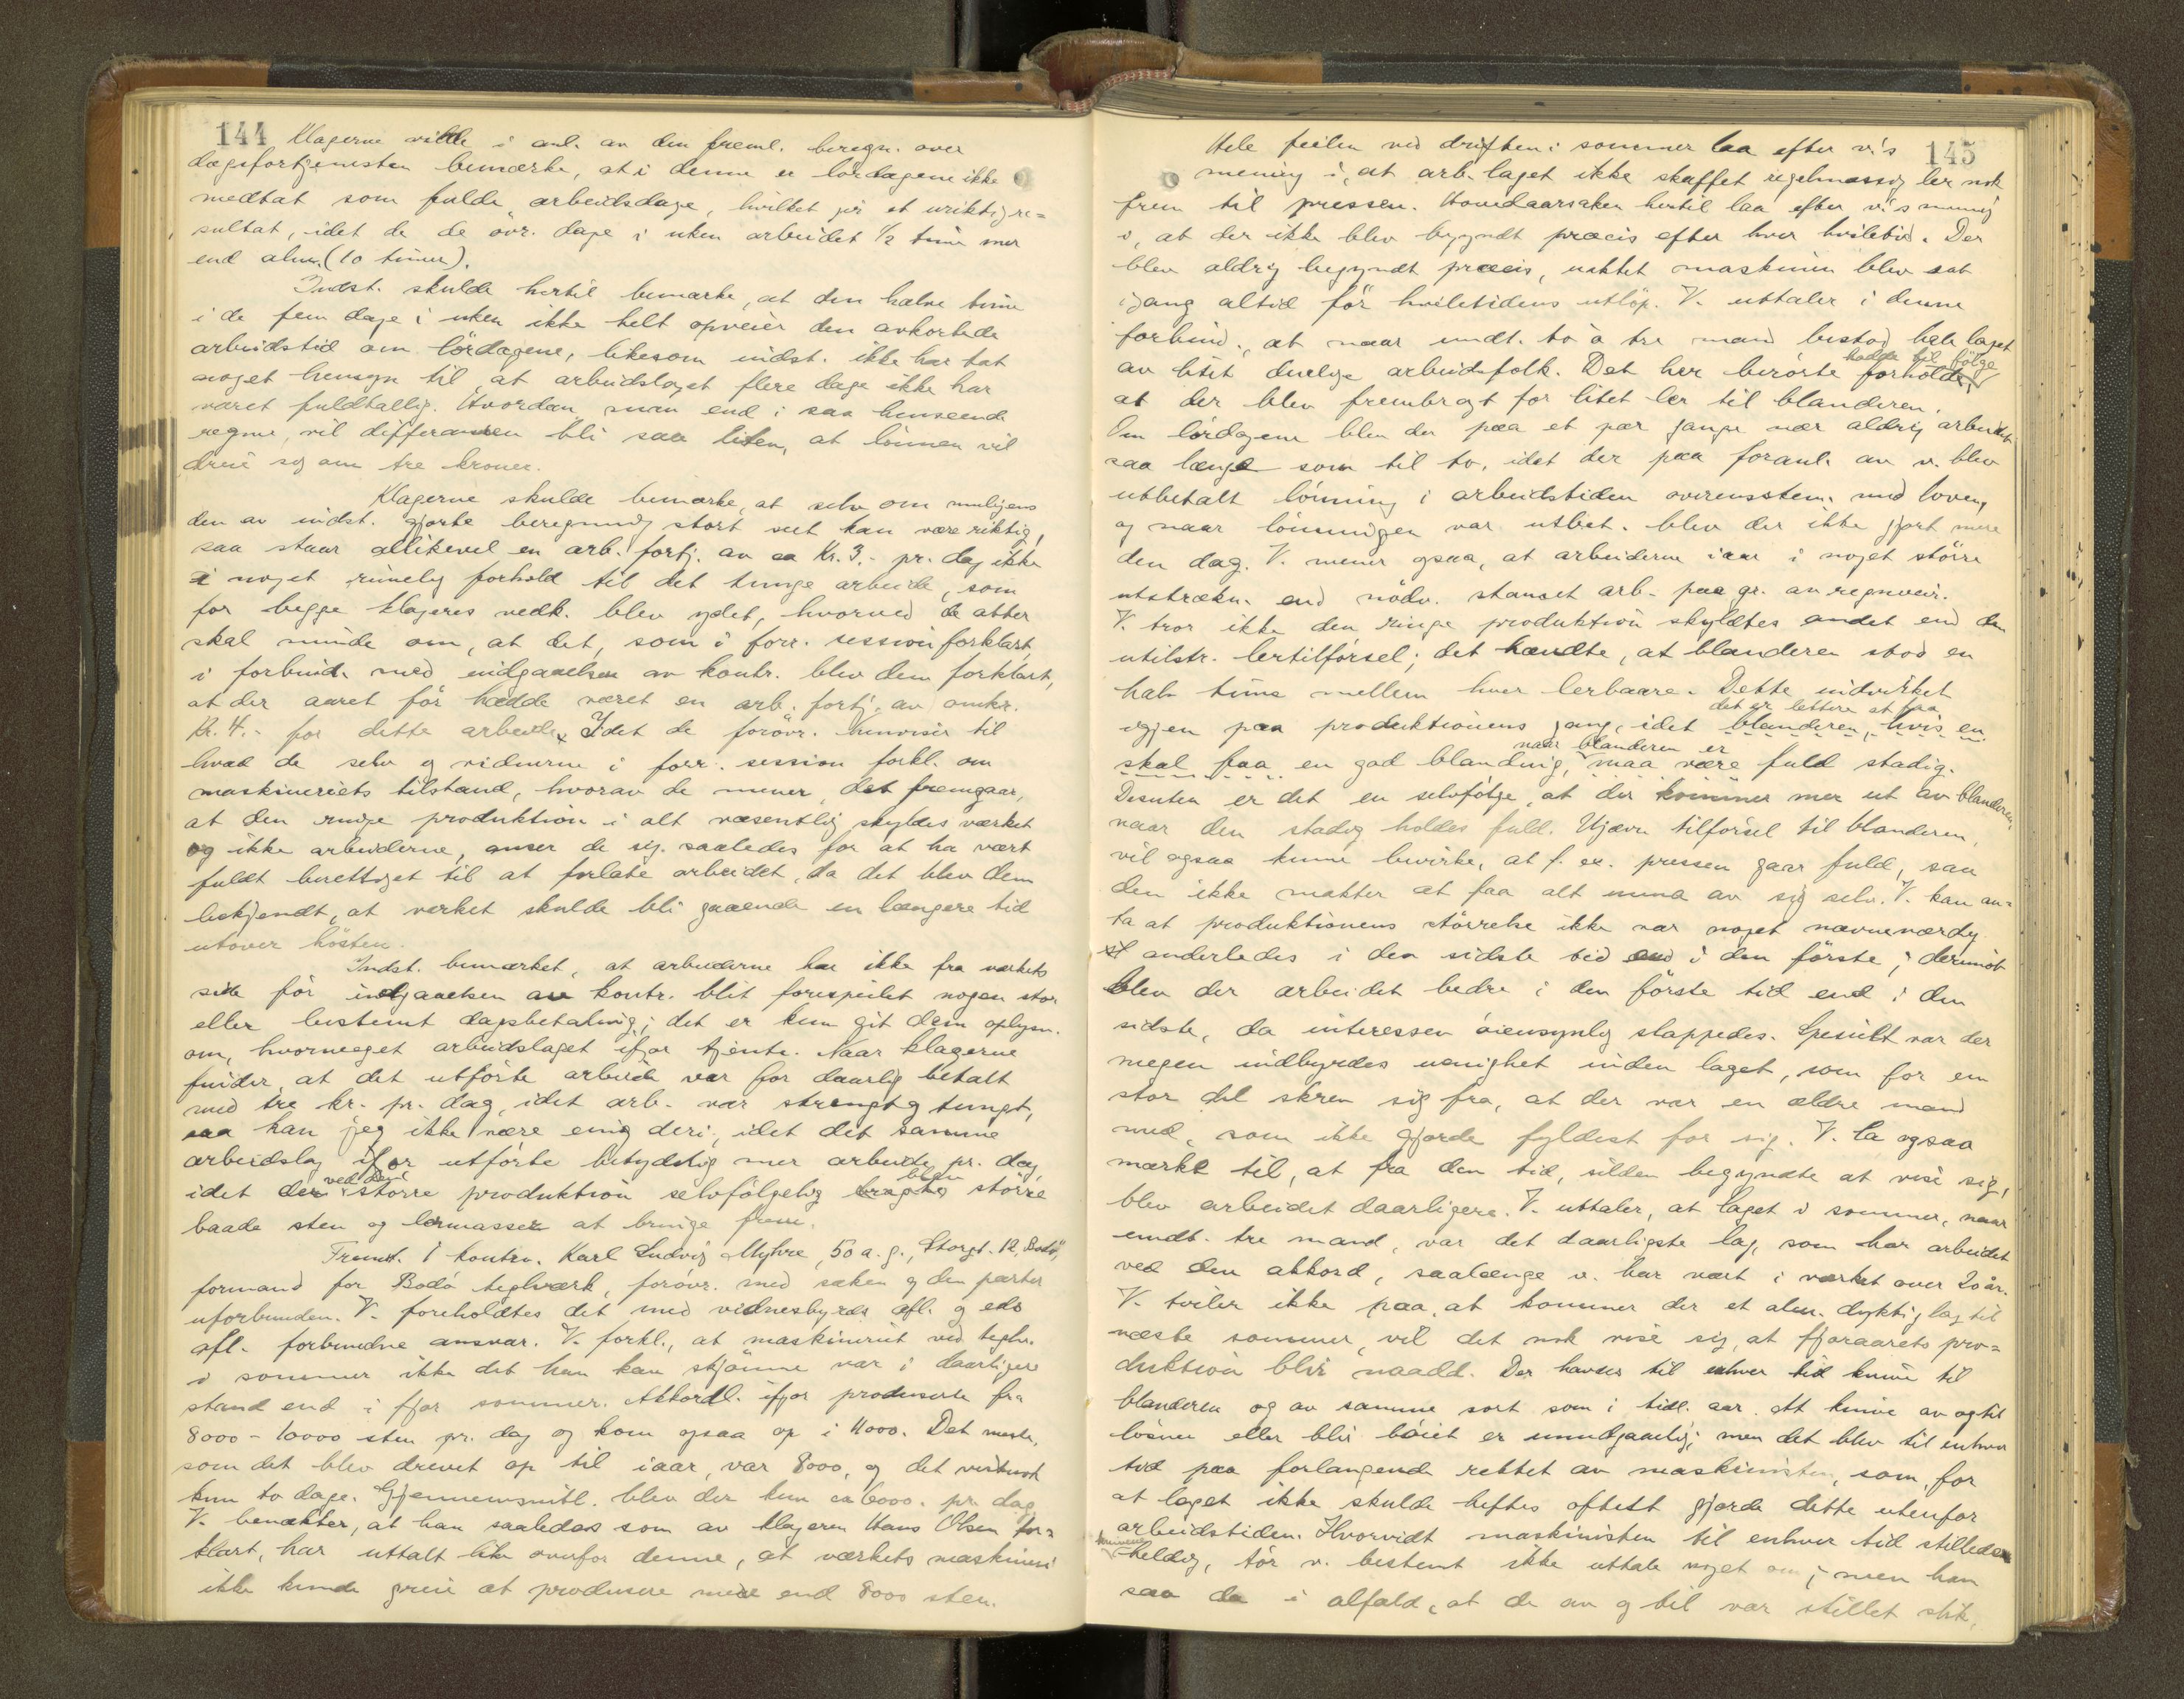 144 Klagerne vilde i anl. av den freml. beregn. over
dagsfortjenesten bemærke, at i denne er lördagene ikke
medtat som fulde arbeidsdage, hvilket gir et uriktig re=
sultat, idet de de övr. dage i uken arbeidet 1/2 time mer
end alm. (10 timer).
Indst. skulde hertil bemærke, at den halve time
i de fem dage i uken ikke helt opveier den avkortede
arbeidstid om lördagene, likesom indst. ikke har tat
noget hensyn til, at arbeidslaget flere dage ikke har
været fuldtallig. Hvordan man end i saa henseende
regner, vil differansen bli saa liten, at lönnen vil
dreie sig om tre kroner.
Klagerne skulde bemærke, at selv om muligens
den av indst. gjorte beregning stort set kan være riktig,
saa staar allikevel en arb. fortj. av ca Kr. 3.- pr. dag ikke
i noget rimelig forhold til det tunge arbeide, som
for begge klageres vedk. blev ydet, hvorved de atter
skal minde om, at det, som i forr. session forklart,
i forbind. med indgaaelsen av kontr. blev dem forklart,
at der aaret för hadde været en arb. fortj. av omkr.
Kr. 4.- for dette arbeide. Idet de forövr. henviser til
hvad de selv og vidnerne i forr. session forkl. om
maskineriets tilstand, hvorav de mener, det fremgaar,
at den ringe produktion i alt væsentlig skyldes værket
og ikke arbeiderne, anser de sig saaledes for at ha vært
fuldt berettiget til at forlate arbeidet, da det blev dem
bekjendt, at verket skulde bli gaaende en længere tid
utover hösten.
Indst. bemærket, at arbeiderne har ikke fra værkets
side för indgaaelsen av kontr. blit forespeilet nogen stor
eller bestemt dagsbetaling; det er kun git dem oplysn.
om, hvormeget arbeidslaget ifjor tjente. Naar klagerne
finder, at det utförte arbeide var for daarlig betalt
med tre kr. pr. dag, idet arb. var strengt og tungt,
saa kan jeg ikke være enig deri, idet det samme
arbeidslag ifjor utförte betydelig mer arbeide pr. dag,
ved den blev
idet der större produktion selvfölgelig bragtes större
baade sten og lermasser at bringe frem.
Fremst. i kontrv. Karl Ludvig Myhre, 50 a. g., Storgt. 12, Bodö,
formand for Bodö teglverk, forövr. med saken og den parter
uforbunden. V. foreholdtes det med vidnesbyrds afl. og eds
afl. forbundne ansvar. V. forkl., at maskineriet ved teglv.
i sommer ikke det han kan skjönne var i daarligere
stand end i fjor sommer. Akkordl. ifjor produserte fra
8000 - 10000 sten pr. dag og kom ogsaa op i 11000. Det meste,
som det blev drevet op til iaar, var 8000, og det vistnok
kun to dage. Gjennemsnitl. blev der kun ca 6000. pr. dag
V. benekter, at han saaledes som av klageren Hans Olsen for=
klart, har uttalt like overfor denne, at værkets maskineri
ikke kunde greie at produsere mere end 8000 sten.
Hele feilen ved driften i sommer laa efter v's 145
mening i, at arb. laget ikke skaffet regelmæssig ler nok
frem til pressen. Hovedaarsaken hertil laa efter v's mening
i, at der ikke blev begyndt præcis efter hver hviletid. Der
blev aldrig begyndt præcis, uaktet maskinen blev sat
igang altid för hviletidens utlöp. V. uttaler i denne
forbind., at naar undt. to à tre mand bestod hele laget
hadde til fölge
av litet duelige arbeidsfolk. Det her berörte forhold
at der blev frembragt for litet ler til blanderen.
Om lördagene blev der paa et par gange nær aldrig arbeidet
saa længe som til to, idet der paa foranl. av v. blev
utbetalt lönning i arbeidstiden overensstem. med loven,
og naar lönningen var utbet. blev der ikke gjort mere
den dag. V. mener ogsaa, at arbeiderne iaar i noget större
utstrækn. end nödv. stanset arb. paa gr. av regnveir.
V. tror ikke den ringe produktion skyldtes andet end den
utilstr. lertilförsel; det hændte, at blanderen stod en
halv time mellem hver lerbaare. Dette indvirket
det er lettere at faa
igjen paa produktionens gang, idet blanderen, hvis en
naar blanderen er
skal faa en god blanding, maa være fuld stadig.
Desuten er det en selvfölge, at der kommer mer ut av blanderen,
naar den stadig holdes fuld. Ujævn tilförsel til blanderen,
vil ogsaa kunne bevirke, at f. ex. pressen gaar fuld, saa
den ikke makter at faa alt unna av sig selv. V. kan an=
ta at produktionens störrelse ikke var noget nævneværdig
anderledes i den sidste tid end i den förste; derimot
blev der arbeidet bedre i den förste tid end i den
sidste, da interessen öiensynlig slappedes. Specielt var der
megen indbyrdes uenighet inden laget, som for en
stor del skrev sig fra, at der var en ældre mand
med, som ikke gjorde fyldest for sig. V. la ogsaa
mærke til, at fra den tid, silden begyndte at vise sig,
blev arbeidet daarligere. V. uttaler, at laget i sommer, naar
undt. tre mand, var det daarligste lag, som har arbeidet
ved den akkord, saalænge v. har vært i værket over 20 år.
V. tviler ikke paa, at kommer der et alm. dyktig lag til
næste sommer, vil det nok vise sig, at fjoraarets pro=
duktion blir naadd. Der havdes til enhver tid knive til
blanderen og av samme sort som i tidl. aar. At knive av og til
lösner eller blir böiet er uundgaaelig; men det blev til enhver
tid paa forlangende rettet av maskinisten, som, for
at laget ikke skulde heftes oftest gjorde dette utenfor
arbeidstiden. Hvorvidt maskinisten til enhver tid stillede
knivene
heldig, tör v. bestemt ikke uttale noget om; men han
saa da i alfald, at de av og til var stillet slik,